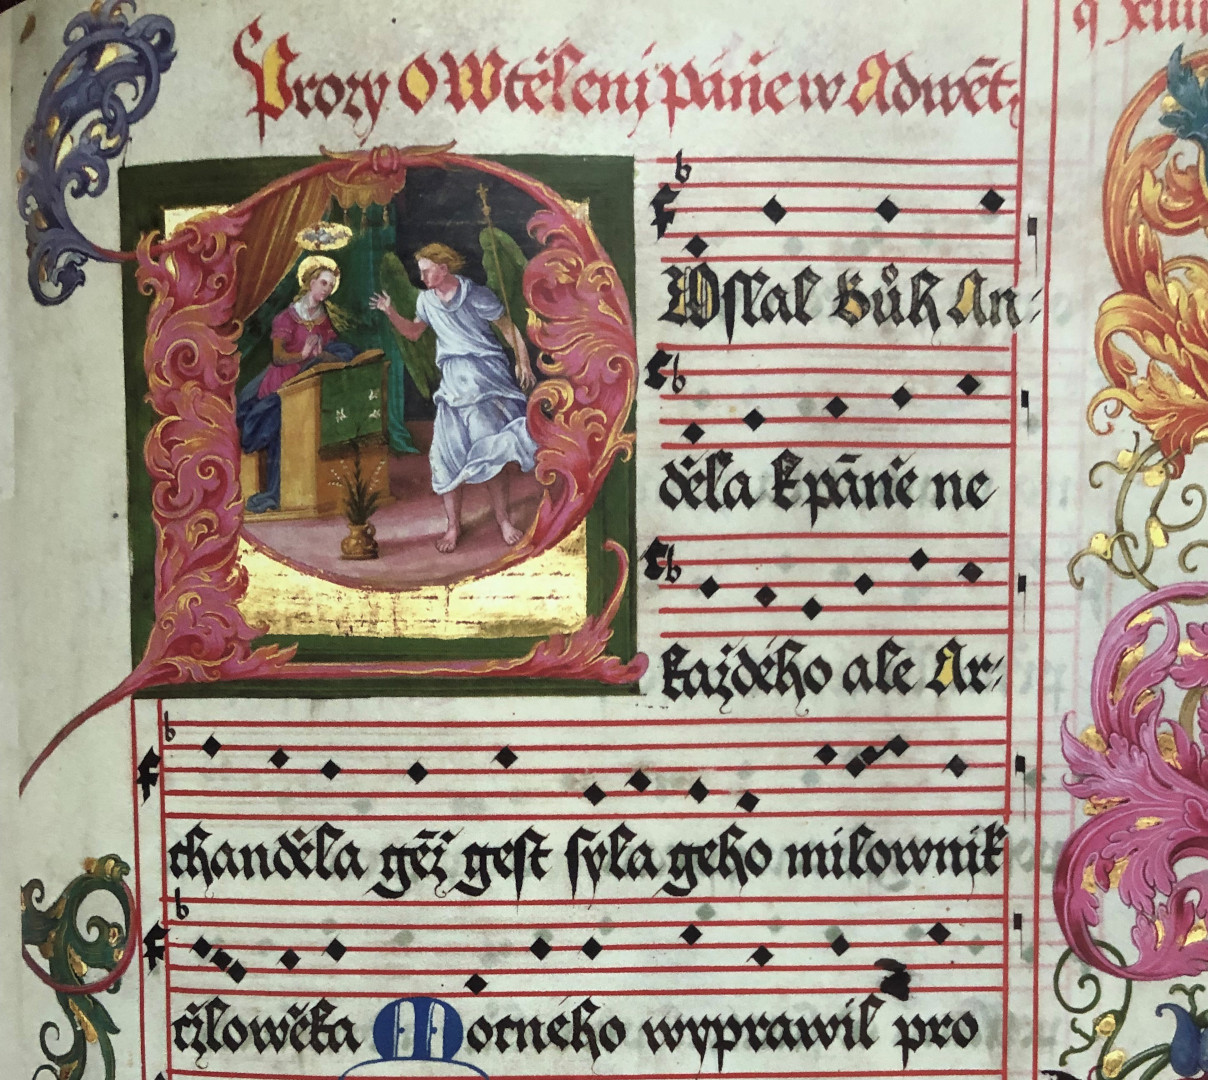 Prozy O Wtělenj Pánie w Adwēt,
q xiiii
Wslal Bůh An-
děla k pānie ne
každého ale Ar-
chanděla gēž gest syla geho milownik
čžlowěka Mocneho wyprawil pro